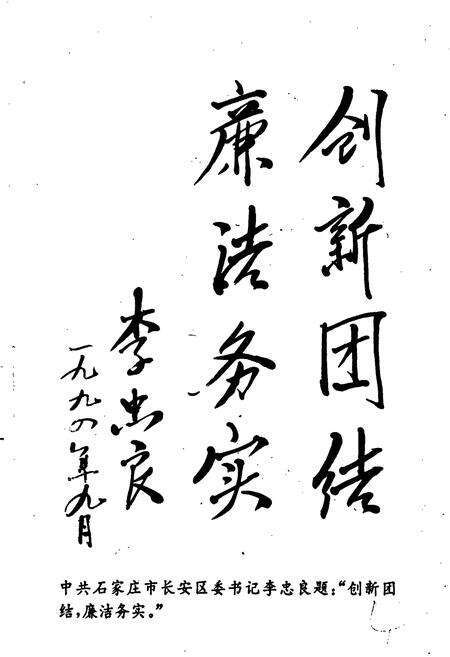 创新团结
廉洁务实
李忠良
一九九四年九月
中共石家庄市长安区委书记李忠良题：“创新团
结，廉洁务实。”